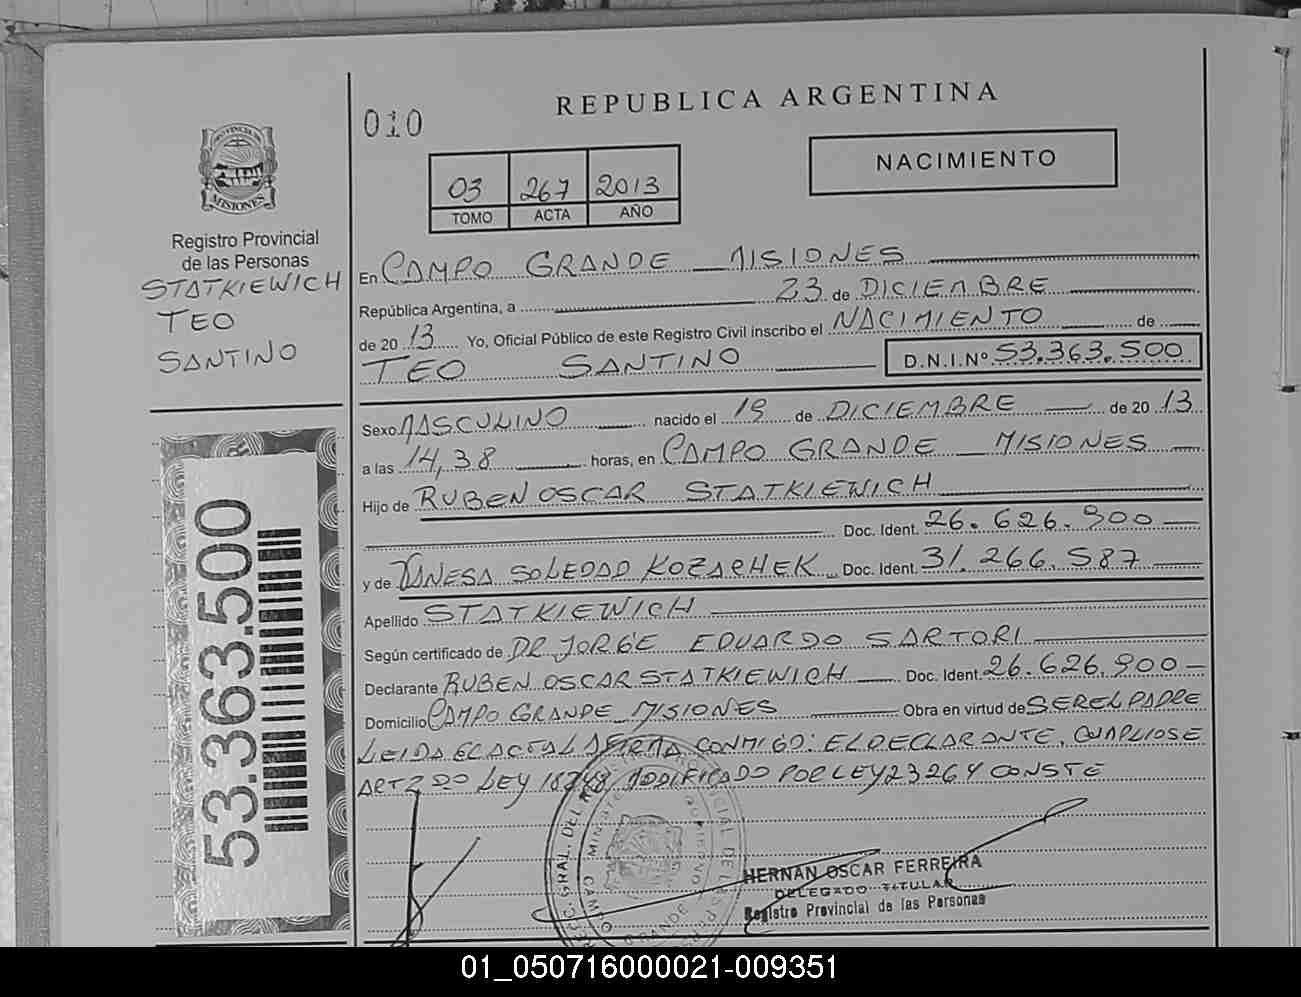 010
REPUBLICA ARGENTINA
PROVINCIA DE
MISIONES
Registro Provincial
de las Personas
STATKIEWICH
TEO
SANTINO
53.363.500
03 267 2013
TOMO ACTA AÑO
NACIMIENTO
En CAMPO GRANDE MISIONES
República Argentina, a 23 de DICIEMBRE
de 20 13 Yo, Oficial Público de este Registro Civil inscribo el NACIMIENTO de
TEO SANTINO D.N.I.Nº 53.363.500
Sexo MASCULINO nacido el 19 de DICIEMBRE de 20 13
a las 14,38 horas, en CAMPO GRANDE MISIONES
Hijo de RUBEN OSCAR STATKIEWICH
Doc. Ident. 26.626.900
y de VANESA SOLEDAD KOZACHEK Doc. Ident. 31.266.587
Apellido STATKIEWICH
Según certificado de DR JORGE EDUARDO SARTORI
Declarante RUBEN OSCAR STATKIEWICH Doc. Ident. 26.626.900
Domicilio CAMPO GRANDE MISIONES Obra en virtud de SER EL PADRE
LEIDA EL ACTA LA FIRMA CONMIGO: EL DECLARANTE. CUMPLIOSE
ART 2 DO LEY 18248 MODIFICADO POR LEY 23264 CONSTE
HERNAN OSCAR FERREIRA
DELEGADO TITULAR
Registro Provincial de las Personas
CAMPO GRANDE
01_050716000021-009351